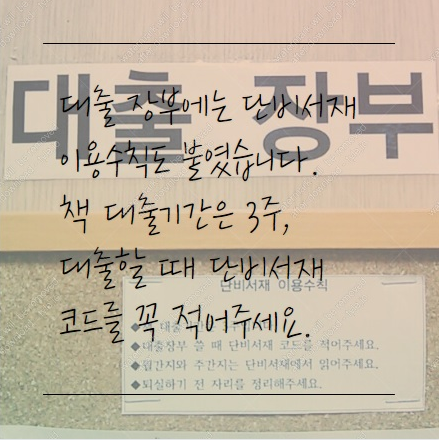 대출 장부
대출 장부에는 단비서재
이용수칙도 붙였습니다.
책 대출기간은 3주,
대출할 때 단비서재
코드를 꼭 적어주세요.
단비서재 이용수칙
◆ 대출
◆대출장부 쓸 때 단비서재 코드를 적어주세요.
◆월간지와 주간지는 단비서재에서 읽어주세요.
◆퇴실하기 전 자리를 정리해주세요.